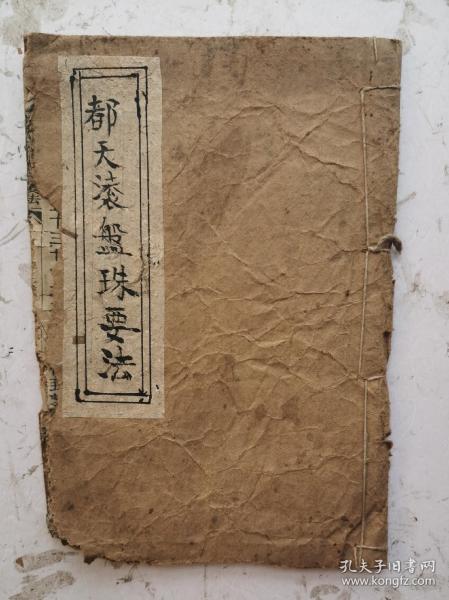 都天滚盤珠要法
孔夫子旧书网
www.kongfz.com